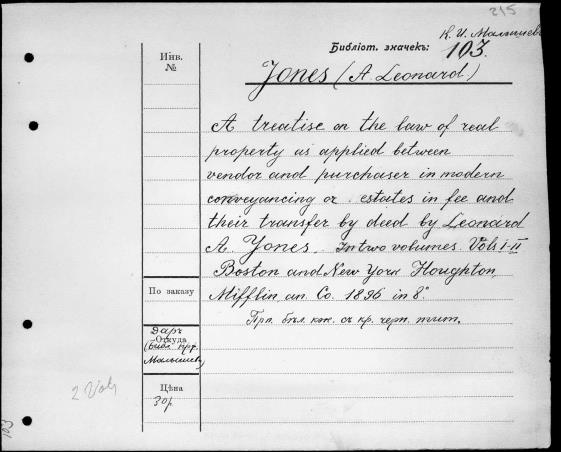 215
К. И. Малышевъ
Библіот. значекъ: 103.
Инв.
№
Jones (A. Leonard)
A treatise on the law of real
property as applied between
vendor and purchaser in modern
conveyancing or estates in fee and
their transfer by deed by Leonard
A. Jones. In two volumes. Vol. I-II
Boston and New York Houghton,
Mifflin, an. Co. 1896 in 8°
Прп. бѣл. кож. съ кр. черн. тит.
По заказу
Даръ
Откуда
(библ. прф.
Малышева)
Цѣна
30р.
2 Vol.
103